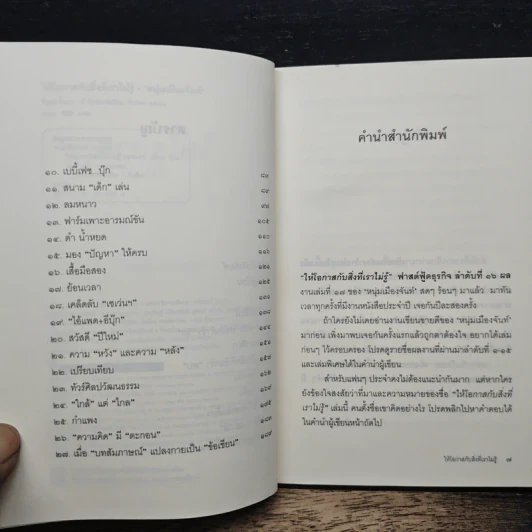 ๑๐. เบบี้เฟซ..บุ๊ก
๑๑. สนาม “เด็ก” เล่น
๑๒. ลมหนาว
๑๓. ฟาร์มเพาะอารมณ์ขัน ๑๐๕
๑๔. ดำ น้ำหยด
๑๕. มอง “ปัญหา” ให้ครบ
๑๖. เสื้อมือสอง
๑๘. ย้อนเวลา
๑๘. เคล็ดลับ “เซเว่นฯ”
๑๙. “ไอ้แพด+อีบุ๊ก”
๒๐. สวัสดี “ปีใหม่”
๒๑. ความ “หวัง” และความ “หลัง”
๒๒. เปรียบเทียบ
๒๓. ทัวร์ศิลปวัฒนธรรม
๒๔. “ใกล้” แต่ “ไกล”
๒๕. กำแพง
๒๖. “ความคิด” มี “ตะกอน”
๒๗. เมื่อ “บทสัมภาษณ์” แปลงกายเป็น “ข้อเขียน”
คำนำสำนักพิมพ์
“ให้โอกาสกับสิ่งที่เราไม่รู้” ฟาสต์ฟู้ดธุรกิจ ลำดับที่ ๑๖ ผล
งานเล่มที่ ๑๘ ของ ‘หนุ่มเมืองจันท์’ สดๆ ร้อนๆ มาแล้ว มาทัน
เวลาทุกครั้งที่มีงานหนังสือประจำปี เจอกันปีละสองครั้ง
ถ้าใครยังไม่เคยอ่านงานเขียนขายดีของ ‘หนุ่มเมืองจันท์’
มาก่อน เพิ่งมาพบเจอกันครั้งแรกแล้วถูกตาต้องใจ อยากได้เล่ม
ก่อนๆ ไว้ครอบครอง โปรดดูรายชื่อผลงานที่ผ่านมาลำดับที่ ๑-๑๕
และเล่มพิเศษได้ในคำนำผู้เขียน
สำหรับแฟนๆ ประจำคงไม่ต้องแนะนำกันมาก แต่หากใคร
ยังข้องใจสงสัยว่าที่มาและความหมายของชื่อ “ให้โอกาสกับสิ่งที่
เราไม่รู้” เล่มนี้ คนตั้งชื่อเขาคิดอย่างไร โปรดพลิกไปหาคำตอบได้
ในคำนำผู้เขียนหน้าถัดไป
ให้โอกาสกับสิ่งที่เราไม่รู้ ๗